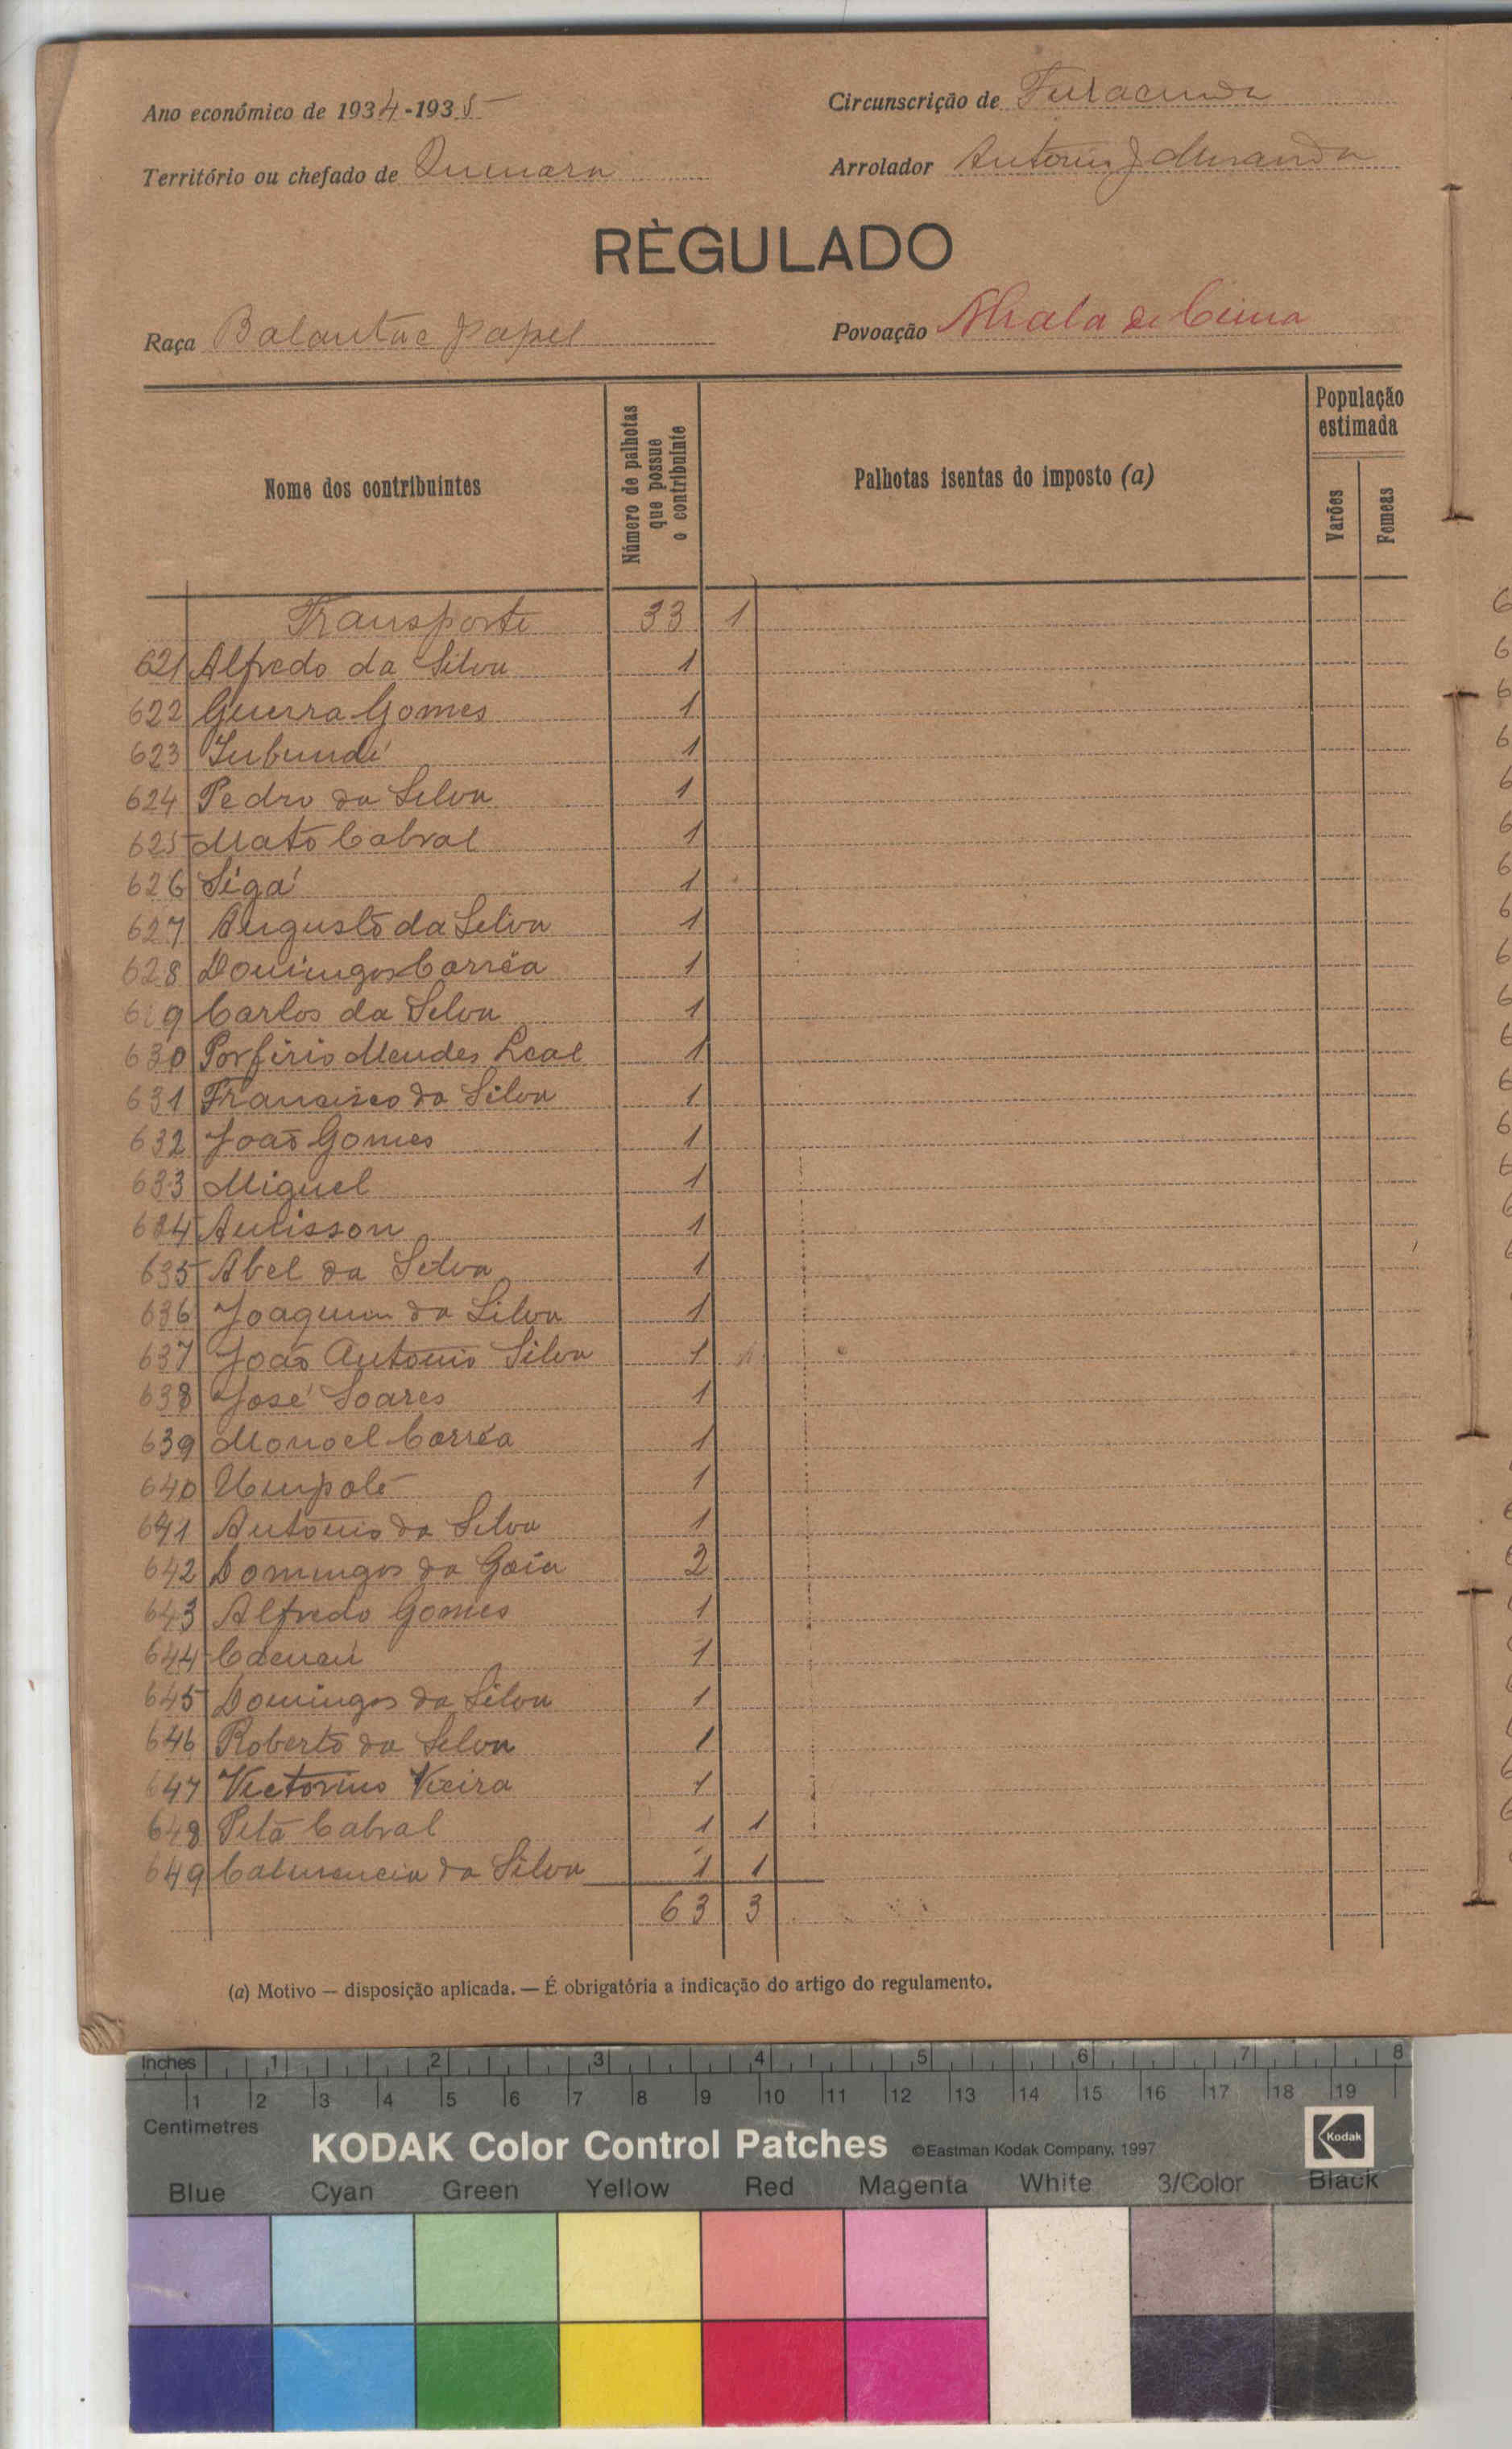 Ano económico de 1934-1935
Circunscrição de
Território ou chefado de Quinara
Arrolador Antonio J Miranda
RÈGULADO
Raça Balanta e Papel
Povoação de Cima
Nome dos contribuintes
Número de palhotas que possue o contribuinte
Palhotas isentas do imposto (a)
População estimada
Varões
Femeas
Transporte 33 1
621 Alfredo da Silva 1
622 Guerra Gomes 1
623 1
624 Pedro da Silva 1
625 Mato Cabral 1
626 Sigá 1
627 Augusto da Silva 1
628 Domingos Corrêa 1
629 Carlos da Silva 1
630 Porfirio Mendes Leal 1
631 Francisco da Silva 1
632 João Gomes 1
633 Miguel 1
634 1
635 Abel da Silva 1
636 Joaquim da Silva 1
637 João Antonio Silva 1
638 José Soares 1
639 Manoel Corrêa 1
640 1
641 Antonio da Silva 1
642 Domingos da 2
643 Alfredo Gomes 1
644 1
645 Domingos da Silva 1
646 Roberto da Silva 1
647 Victorino Vieira 1
648 Cabral 1 1
649 da Silva 1 1
63 3
(a) Motivo — disposição aplicada. — É obrigatória a indicação do artigo do regulamento.
Inches 1 2 3 4 5 6 7 8
1 2 3 4 5 6 7 8 9 10 11 12 13 14 15 16 17 18 19
Centimetres
KODAK Color Control Patches ©Eastman Kodak Company, 1997 Kodak
Blue Cyan Green Yellow Red Magenta White 3/Color Black